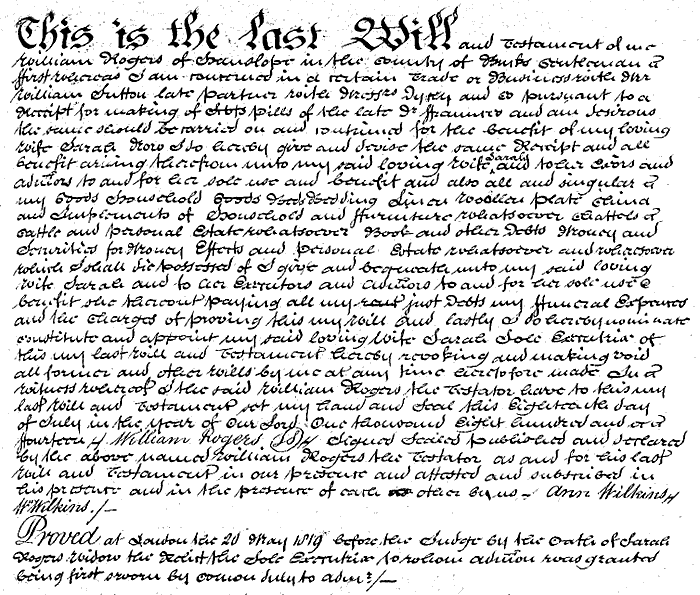 This is the last Will and Testament of me
William Rogers of Hanslope in the County of Bucks Gentleman
first whereas I am concerned in a certain Trade or Business with Mr
William Sutton late partner with Messrs Dicey and Co pursuant to a
Receipt for making of Pills of the late Dr Hammer and am desirous
the same should be carried on and continued for the benefit of my loving
wife Sarah Now I do hereby give and devise the same Receipt and all
benefit arising therefrom unto my said loving Wife Sarah and to her Exors and
admtors to and for her sole use and benefit and also all and singular
my Goods Household Goods Beds Bedding Linen Woollen plate China
and Implements of Household and ffurniture whatsoever Chattels
Cattle and personal Estate whatsoever Book and other Debts Money and
Securities for Money Effects and personal Estate whatsoever and wheresoever
which I shall die possessed of I give and bequeath unto my said loving
wife Sarah and to her Executors and admtors to and for her sole use
benefit she thereout paying all my just Debts my ffuneral Expences
and the Charges of proving this my Will And lastly I do hereby nominate
constitute and appoint my said loving Wife Sarah Sole Executrix of
this my last will and Testament hereby revoking and making void
all former and other wills by me at any time heretofore made In
witness whereof I the said William Rogers the Testator have to this my
last Will and Testament set my hand and Seal this Eighteenth day
of July in the year of Our Lord One thousand Eight hundred and
ffourteen William Rogers Signed Sealed published and declared
by the above named William Rogers the Testator as and for his last
will and Testament in our presence and attested and subscribed in
his presence and in the presence of each other by us - Ann Wilkins
Wm Wilkins./-
Proved at London the 20 May 1819 before the Judge by the Oath of Sarah
Rogers widow the Relict the Sole Executrix to whom admton was granted
being first sworn by Comon duly to admr:/-